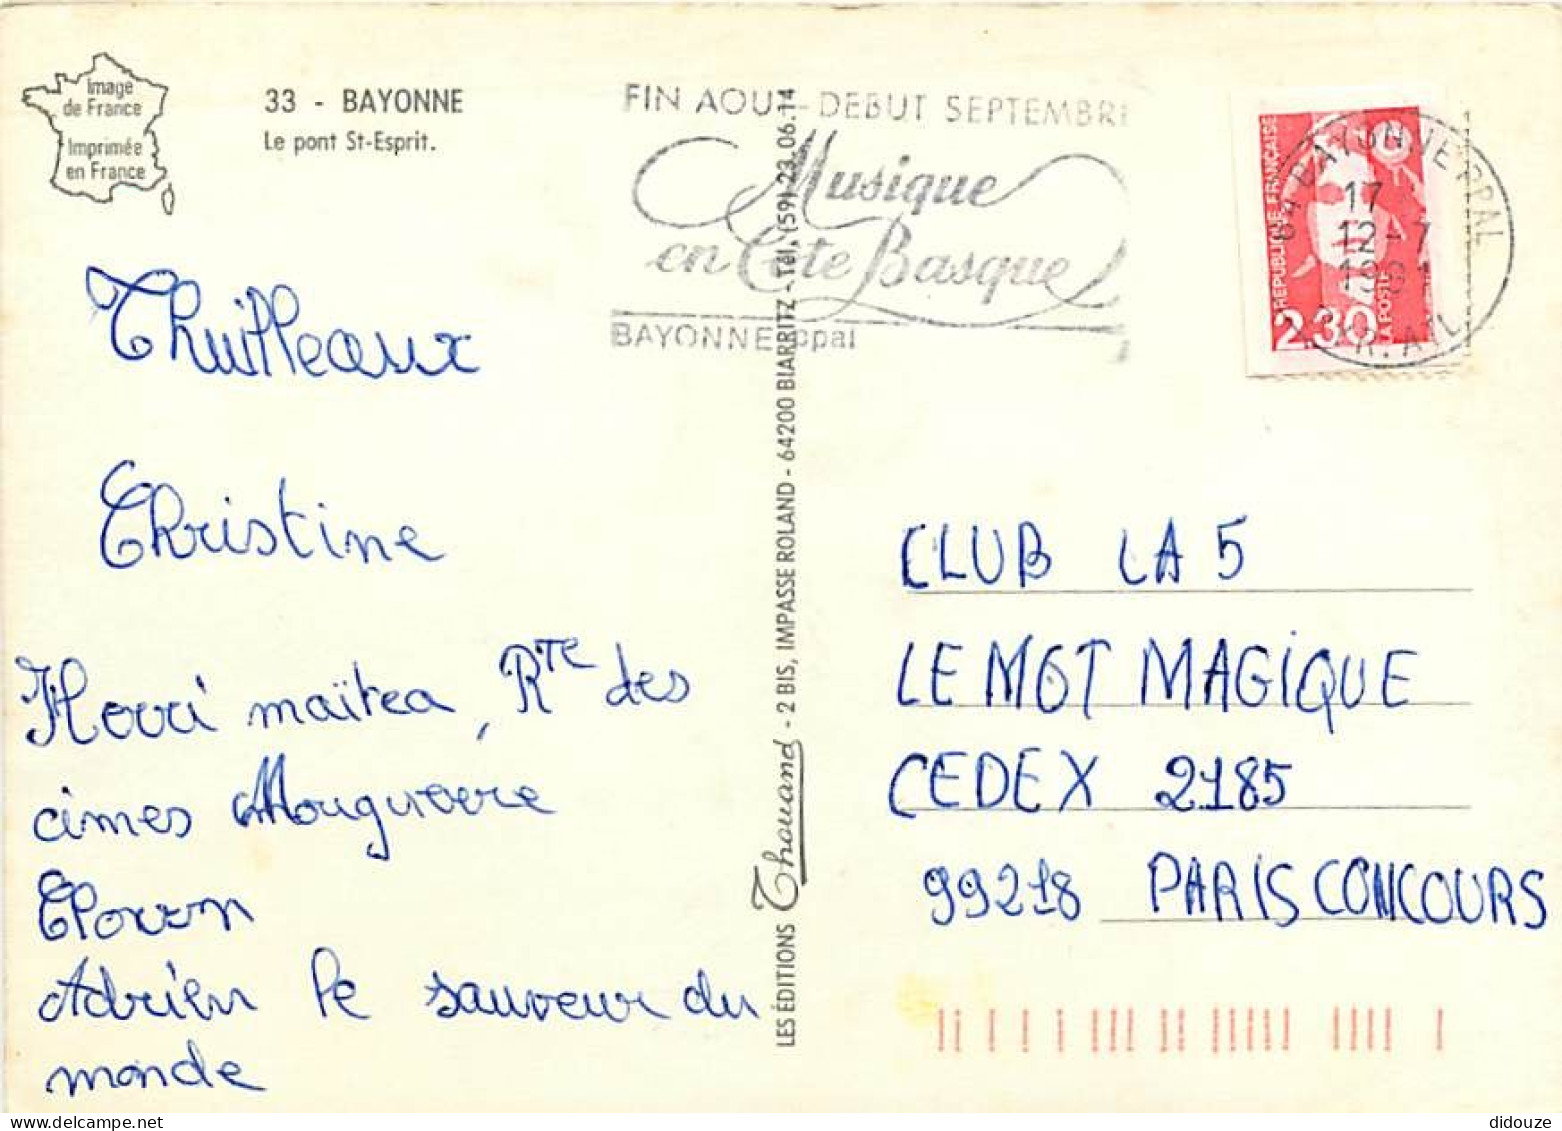 Image
de France
Imprimée
en France
33 - BAYONNE
Le pont St-Esprit.
FIN AOUT - DEBUT SEPTEMBRE
Musique
en Côte Basque
BAYONNE ppal
64 BAYONNE PPAL
17
12-7
1991
PYR. ATL.
REPUBLIQUE FRANÇAISE
2,30
LA POSTE
Thuilleaux
Christine
Herri maïtea, Rte des
cimes Mouguerre
Elovan
Adrien le sauveur du
monde
LES ÉDITIONS Thouand - 2 BIS, IMPASSE ROLAND - 64200 BIARRITZ - Tél. (59) 23.06.14
CLUB LA 5
LE MOT MAGIQUE
CEDEX 2185
99218 PARIS CONCOURS
didouze